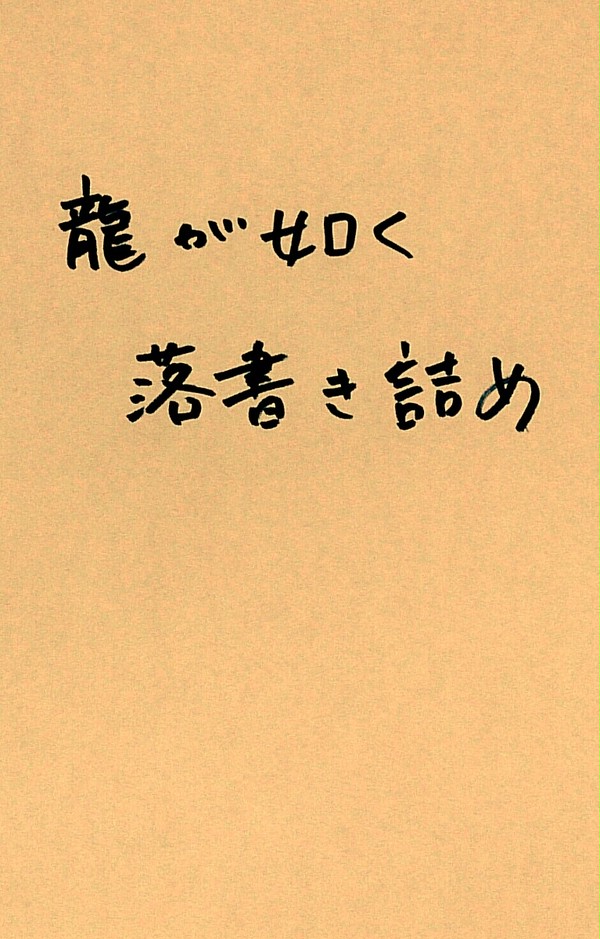 龍が如く
落書き詰め